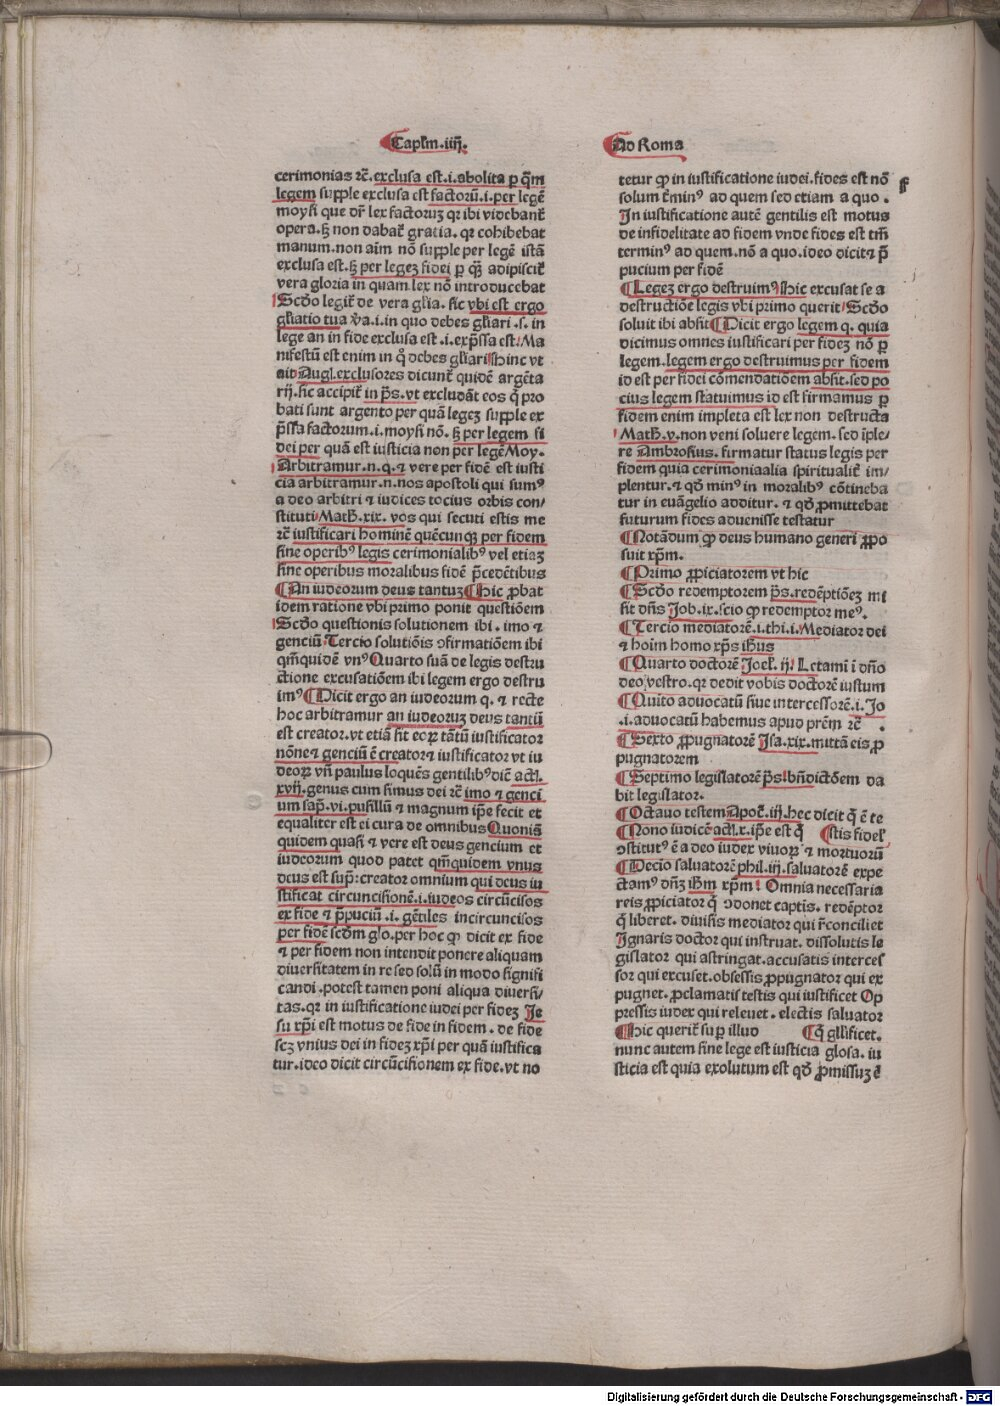 Capl̄m. iiij.
Ad Roma
cerimonias ⁊c̄. exclusa est .i. abolita ꝑ q̄m
legem supple exclusa est factoꝝ .i. per legē
moysi que dr̄ lex factoruꝫ qꝛ ibi videbant᷑
opera. sꝫ non dabat᷑ gratia. qꝛ cohibebat
manum. non aīm nō supple per legē istā
exclusa est. sꝫ per legeꝫ fidei ꝑ q̄ꝫ adipiscit᷑
vera gloria in quam lex nō introducebat
Scd̄o legit᷑ de vera gl̄ia. sic vbi est ergo
gl̄iatio tua v̄a .i. in quo debes gl̄iari .s. in
lege an in fide exclusa est .i. exp̄ssa est. Ma
nifestū est enim in q̊ debes gl̄iari hinc vt
ait Augl. exclusores dicunt᷑ quidē argēta
rij. sic accipit᷑ in p̄s. vt excludāt eos q̄ pro
bati sunt argento per quā legeꝫ supple ex
p̄ssa factorum .i. moysi nō. sꝫ per legem fi
dei per quā est iusticia non per legē Moy.
Arbitramur .n. q. ⁊ vere per fidē est iusti
cia arbitramur .n. nos apostoli qui sumꝰ
a deo arbitri ⁊ iudices tocius orbis con/
stituti Math. xix. vos qui secuti estis me
⁊c̄ iustificari hominē quēcunqꝫ per fidem
sine operibꝰ legis cerimonialibꝰ vel etiaꝫ
sine operibus moralibus fidē p̄cedētibus
¶ An iudeorum deus tantuꝫ ¶ Hic ꝓbat
idem ratione vbi primo ponit questiōem
Scd̄o questionis solutionem ibi. imo ⁊
genciū. Tercio solutiōis ꝯfirmatiōem ibi
qm̄quidē vnꝰ Quarto suā de legis destru
ctione excusatiōem ibi legem ergo destru
imꝰ ¶ Dicit ergo an iudeorum q. ⁊ recte
hoc arbitramur an iudeoruꝫ deus tantū
est creator. vt etiā sit eoꝝ tātū iustificator
nōne ⁊ genciū ē creator ⁊ iustificator vt iu
deoꝝ vn̄ paulus loquēs gentilibꝰ dic̄ act᷑.
xvij. genus cum simus dei ⁊c̄ imo ⁊ genci
um sap̄. vi. pusillū ⁊ magnum ip̄e fecit et
equaliter est ei cura de omnibus Quoniā
quidem quasi ⁊ vere est deus gencium et
iudeorum quod patet qm̄quidem vnus
deus est sup̄: creator omnium qui deus iu
stificat circuncisionē .i. iudeos circūcisos
ex fide ⁊ p̄puciū .i. gētiles incircuncisos
per fidē scd̄m glo. per hoc ꝙ dicit ex fide
⁊ per fidem non intendit ponere aliquam
diuersitatem in re sed solū in modo signifi
candi. potest tamen poni aliqua diuersi/
tas. qꝛ in iustificatione iudei per fideꝫ Je
su xp̄i est motus de fide in fidem. de fide
scꝫ vnius dei in fideꝫ xp̄i per quā iustifica
tur. ideo dicit circūcisionem ex fide. vt no
tetur ꝙ in iustificatione iudei. fides est nō
solum t̄minꝰ ad quem sed etiam a quo.
In iustificatione autē gentilis est motus
de infidelitate ad fidem vnde fides est tm̄
terminꝰ ad quem. nō a quo. ideo dicit᷑ ꝑ p̄
pucium per fidē
¶ Legeꝫ ergo destruimꝰ Hic excusat se a
destructiōe legis vbi primo querit Scd̄o
soluit ibi absit ¶ Dicit ergo legem q. quia
dicimus omnes iustificari per fideꝫ nō ꝑ
legem. legem ergo destruimus per fidem
id est per fidei cōmendatiōem absit. sed po
cius legem statuimus id est firmamus ꝑ
fidem enim impleta est lex non destructa
Math. v. non veni soluere legem. sed īple/
re Ambrosius. firmatur status legis per
fidem quia cerimoniaalia spiritualit᷑ im/
plentur. ⁊ qd̄ minꝰ in moralibꝰ cōtineba
tur in euāgelio additur. ⁊ qd̄ ꝓmittebat
futurum fides aduenisse testatur
¶ Notādum ꝙ deus humano generi ꝓpo
suit xp̄m.
¶ Primo ꝓpiciatorem vt hic
¶ Scd̄o redemptorem p̄s. redēptiōeꝫ mi
sit dn̄s Job. ix. scio ꝙ redemptor meꝰ.
¶ Tercio mediatorē .i. thi. i. Mediator dei
⁊ hoīm homo xp̄s ih̄us
¶ Quarto doctorē Joel. ij. Letamī ī dn̄o
deo vestro. qꝛ dedit vobis doctorē iustum
¶ Quīto aduocatū siue intercessorē .i. Jo
.i. aduocatū habemus apud prēm ⁊c̄
¶ Sexto ꝓpugnatorē Isa. xix. mittā eis ꝓ
pugnatorem
¶ Septimo legislatorē p̄s. bn̄dictōem da
bit legislator.
¶ Octauo testem Apoc̄. iij. hec dicit q̄ ē te
¶ Nono iudicē act᷑. x. ip̄e est q̄ ¶ stis fidel᷑
ꝯstitutꝰ ē a deo iudex viuoꝝ ⁊ mortuorū
¶ Decīo saluatorē phil. iij. saluatorē expe
ctamꝰ dn̄ꝫ ih̄m xp̄m. Omnia necessaria
reis ꝓpiciator q̄ ꝯdonet captis. redēptor
q̄ liberet. diuisis mediator qui r̄conciliet
Ignaris doctor qui instruat. dissolutis le
gislator qui astringat. accusatis interces
sor qui excuset. obsessis ꝓpugnator qui ex
pugnet. ꝓclamatis testis qui iustificet Op
pressis iudex qui releuet. electis saluator
¶ Hic querit᷑ suꝑ illud ¶ q̄ gl̄ificet.
nunc autem sine lege est iusticia glosa. iu
sticia est quia exolutum est qd̄ ꝓmissuꝫ ē
Digitalisierung gefördert durch die Deutsche Forschungsgemeinschaft - DFG